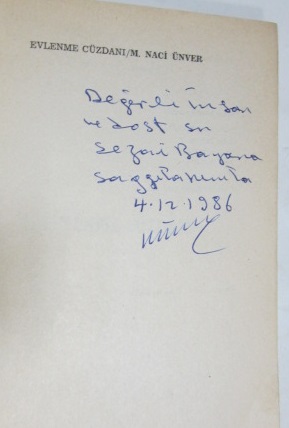 EVLENME CÜZDANI/M. NACİ ÜNVER
Değerli İnsan
ve dost sn
Sezai Bayana
saygılarımla
4.12.1986